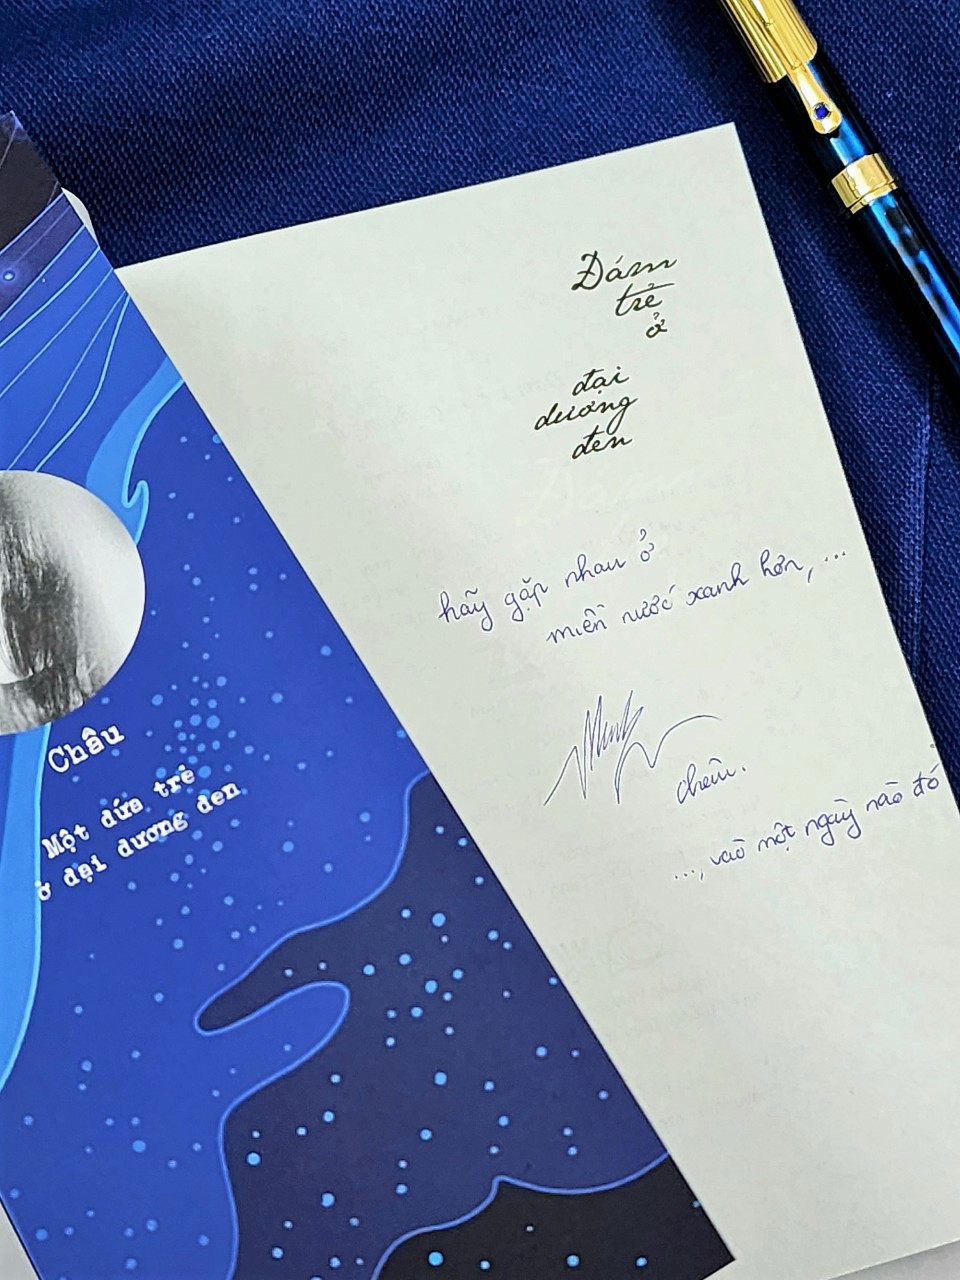 Châu
Một đứa trẻ
ở đại dương đen
Đám
trẻ
ở
đại
dương
đen
hãy gặp nhau ở
miền nước xanh hơn, ...
Châu.
..., vào một ngày nào đó